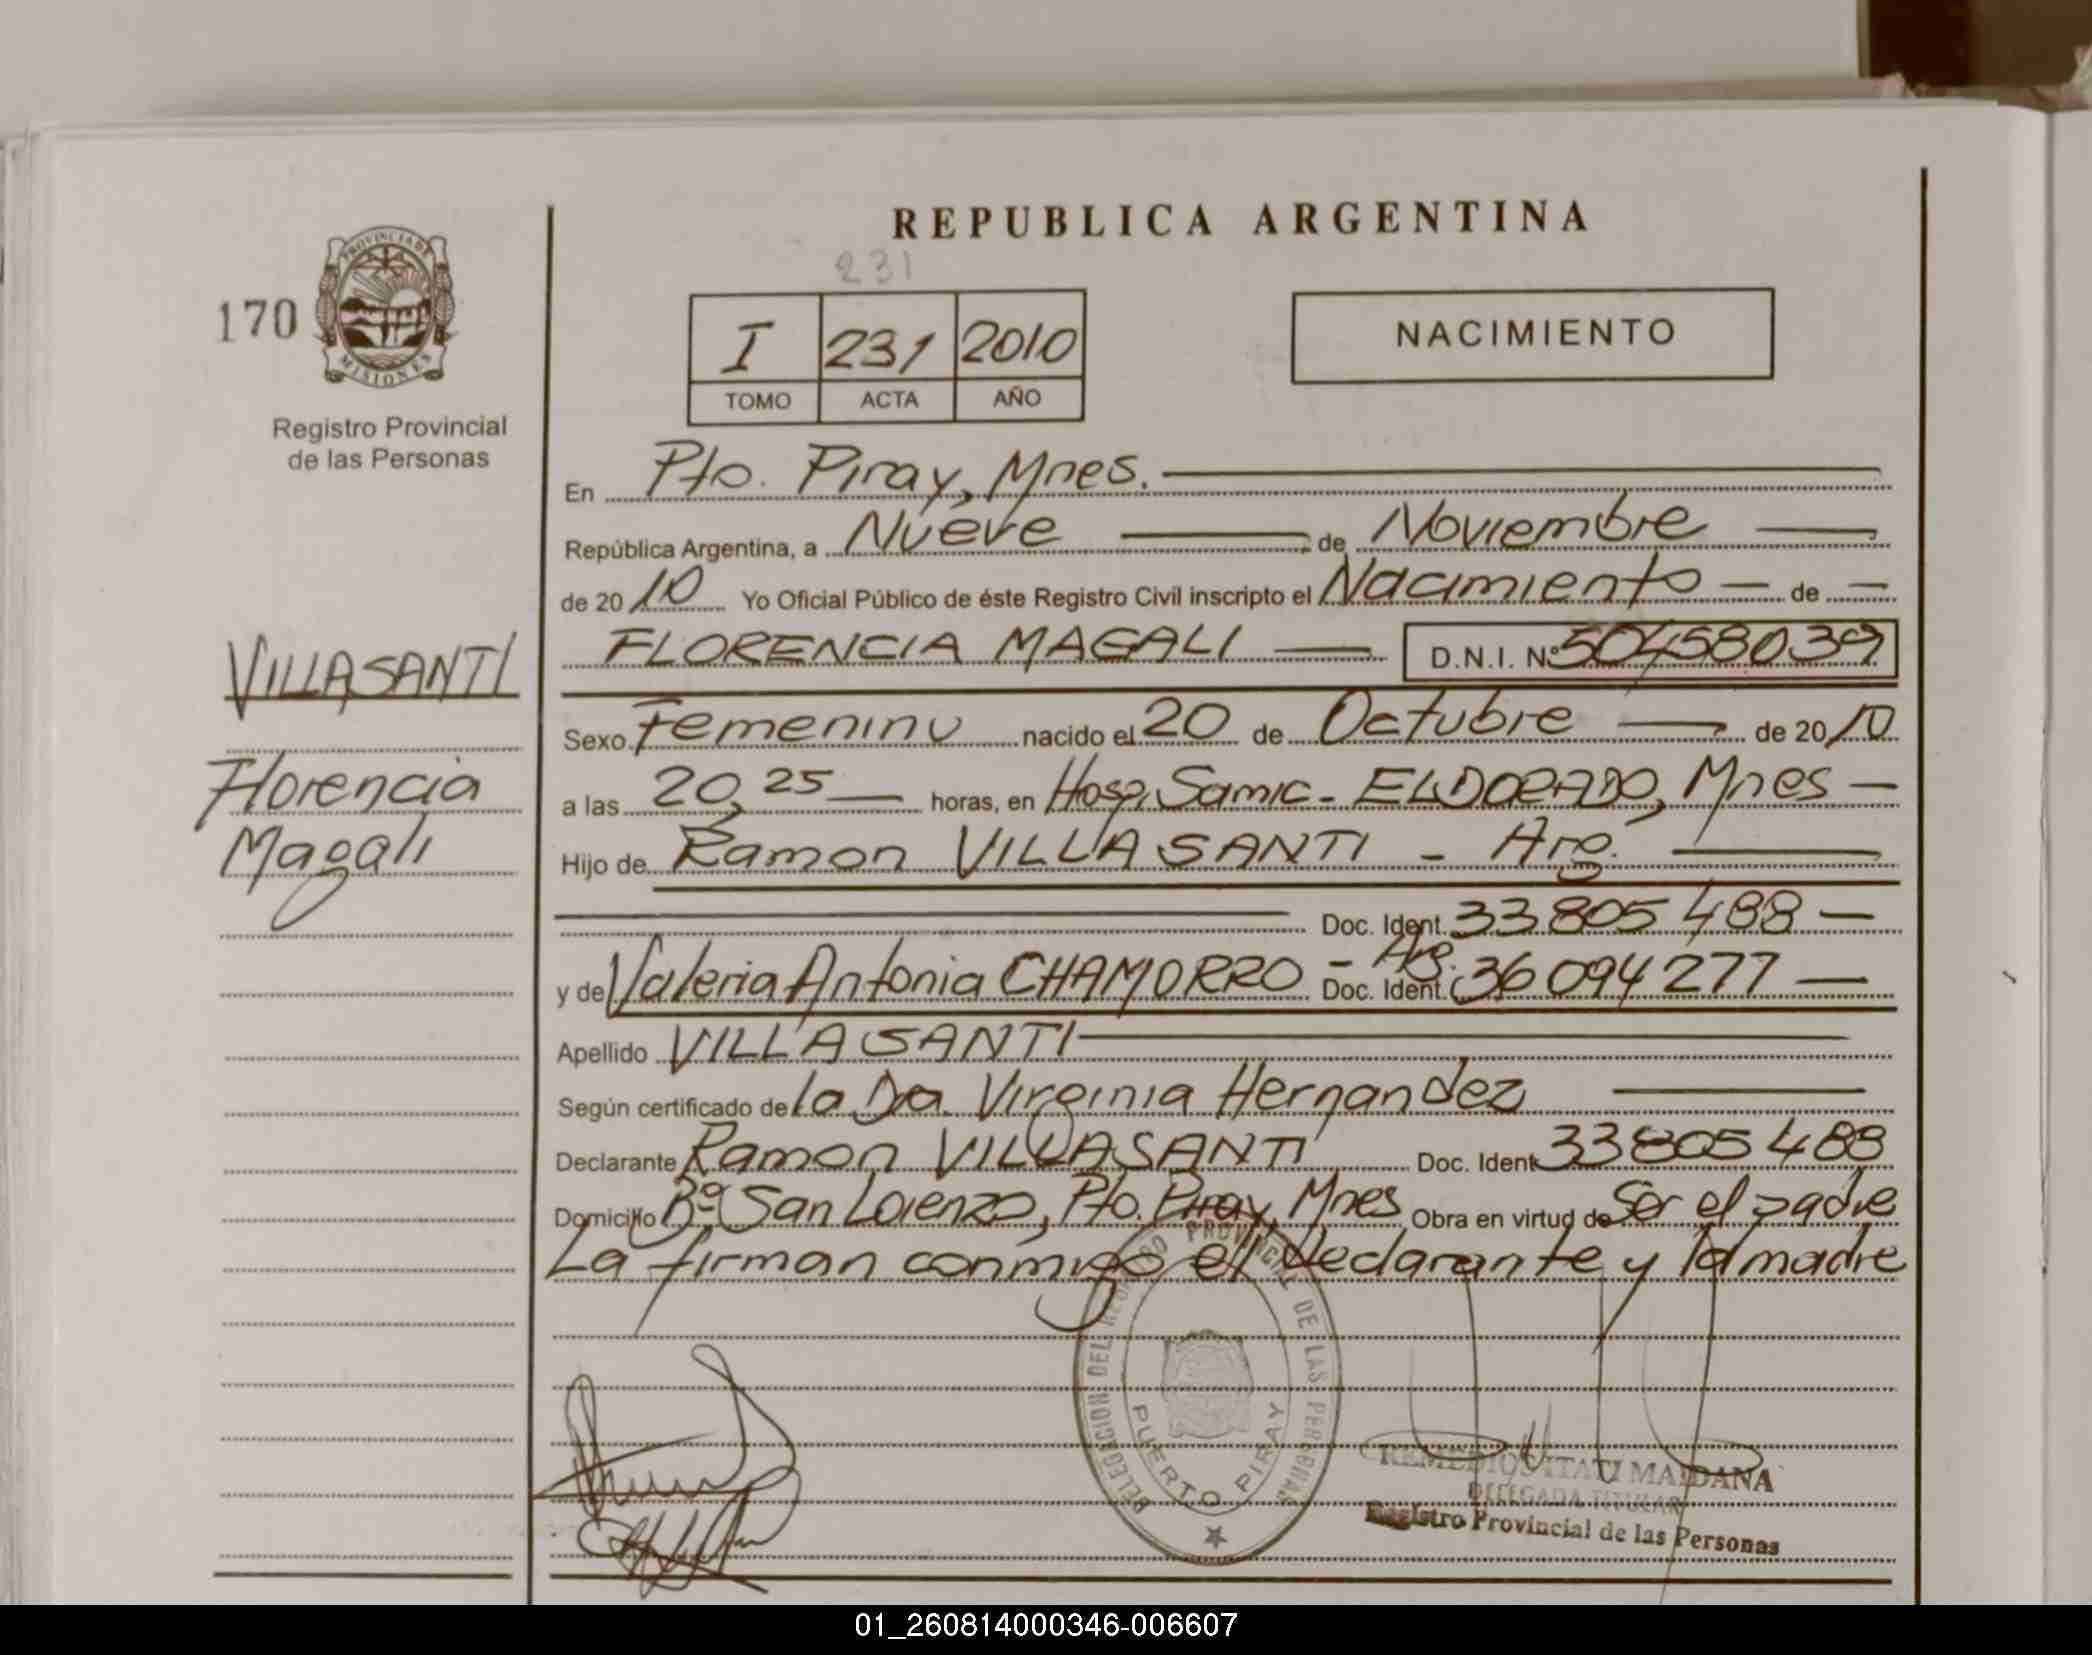 REPUBLICA ARGENTINA
231
170
PROVINCIA DE
MISIONES
Registro Provincial
de las Personas
I 231 2010
TOMO ACTA AÑO
NACIMIENTO
En Pto. Piray, Mnes.
República Argentina, a Nueve de Noviembre
de 2010 Yo Oficial Público de éste Registro Civil inscripto el Nacimiento de
FLORENCIA MAGALI D.N.I. Nº 50458039
VILLASANTI
Florencia
Magali
Sexo Femenino nacido el 20 de Octubre de 2010
a las 20,25 horas, en Hosp. Samic - ELDORADO, Mnes
Hijo de Ramon VILLASANTI - Arg.
Doc. Ident. 33 805 488
y de Valeria Antonia CHAMORRO - Arg. Doc. Ident. 36 094 277
Apellido VILLASANTI
Según certificado de la Dra. Virginia Hernandez
Declarante Ramon VILLASANTI Doc. Ident 33 805 488
Domicilio Bº San Lorenzo, Pto. Piray, Mnes Obra en virtud de Ser el padre
La firman conmigo el declarante y la madre
DELEGACION DEL REGISTRO PROVINCIAL DE LAS PERSONAS
PUERTO PIRAY
REMEDIOS ITATI MAIDANA
DELEGADA TITULAR
Registro Provincial de las Personas
01_260814000346-006607